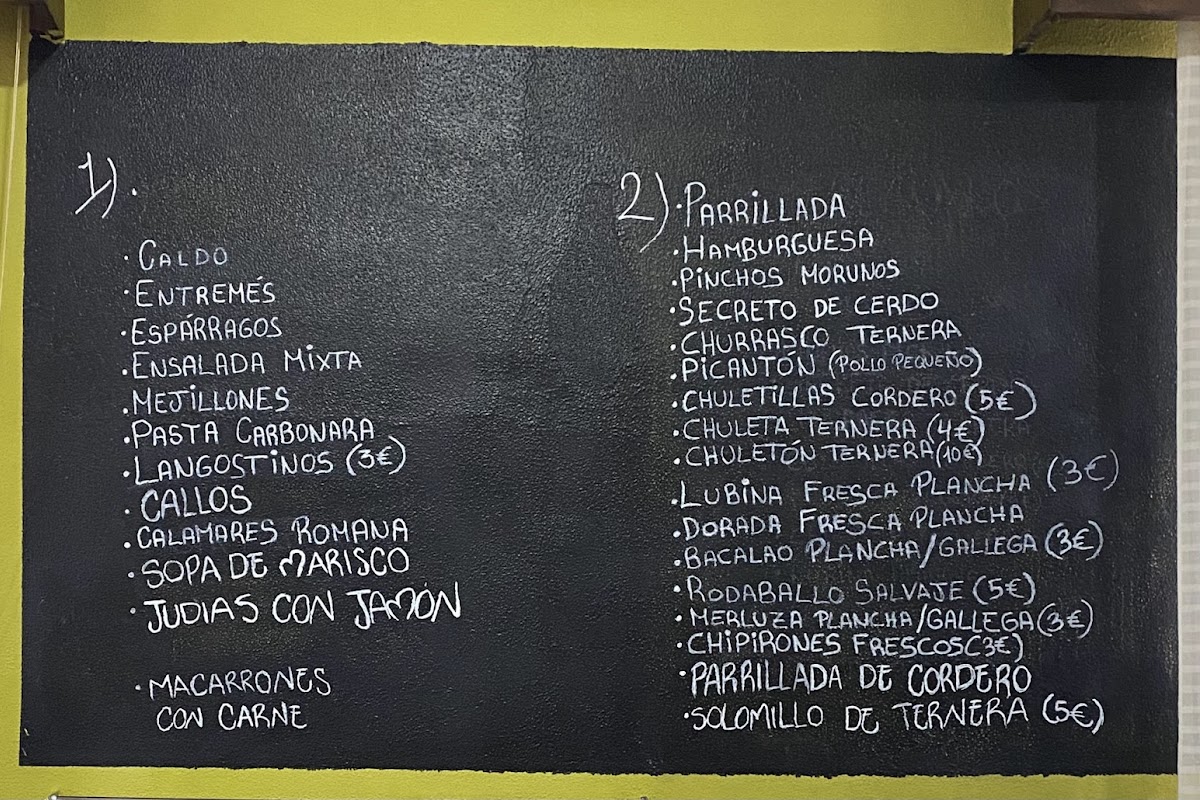 1).
· CALDO
· ENTREMÉS
· ESPÁRRAGOS
· ENSALADA MIXTA
· MEJILLONES
· PASTA CARBONARA
· LANGOSTINOS (3€)
· CALLOS
· CALAMARES ROMANA
· SOPA DE MARISCO
· JUDIAS CON JAMÓN
· MACARRONES
CON CARNE
2) · PARRILLADA
· HAMBURGUESA
· PINCHOS MORUNOS
· SECRETO DE CERDO
· CHURRASCO TERNERA
· PICANTÓN (POLLO PEQUEÑO)
· CHULETILLAS CORDERO (5€)
· CHULETA TERNERA (4€)
· CHULETÓN TERNERA (10€)
· LUBINA FRESCA PLANCHA (3€)
· DORADA FRESCA PLANCHA
· BACALAO PLANCHA/GALLEGA (3€)
· RODABALLO SALVAJE (5€)
· MERLUZA PLANCHA/GALLEGA (3€)
· CHIPIRONES FRESCOS (3€)
· PARRILLADA DE CORDERO
· SOLOMILLO DE TERNERA (5€)